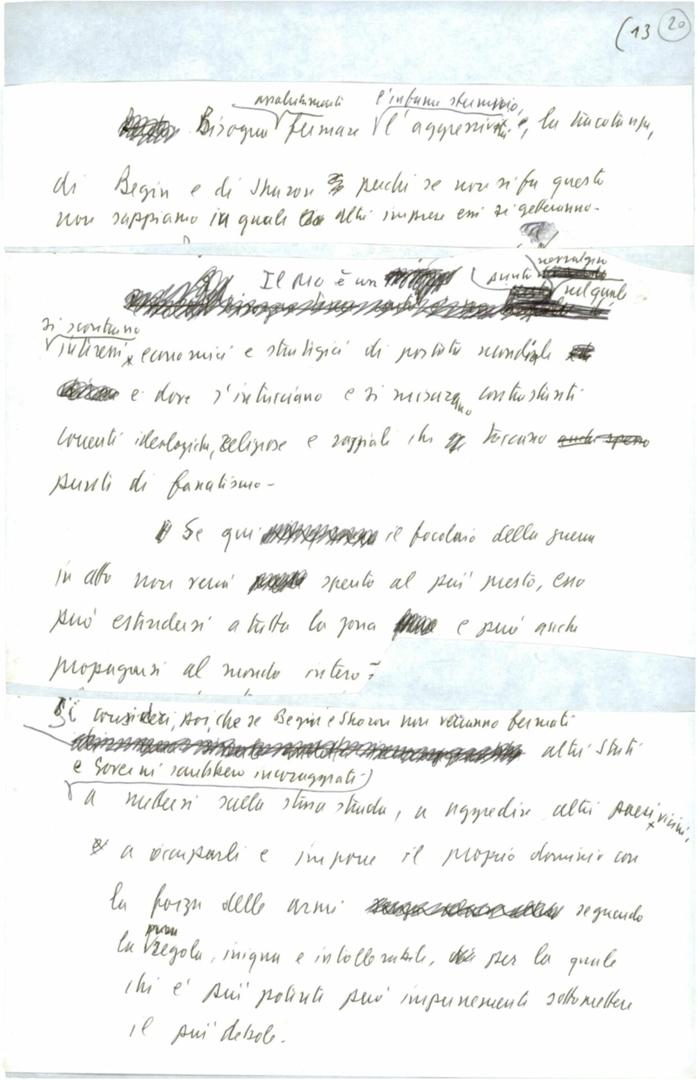 (13 20
assolutamente l'infame sterminio,
Bisogna fermare l'aggressività, la tracotanza,
di Begin e di Sharon perché se non si fa questo
non sappiamo in quali altre imprese essi si getteranno.
nevralgico
Il MO è un punto nel quale
si scontrano
interessi economici e strategici di portata mondiale
e dove s'intrecciano e si misurano contrastanti
correnti ideologiche, religiose e razziali che toccano anche spesso
punti di fanatismo -
Se qui il focolaio della guerra
in atto non verrà spento al più presto, esso
può estendersi a tutta la zona e può anche
propagarsi al mondo intero.
Si consideri, poi, che se Begin e Sharon non verranno fermati
altri Stati
e Governi sarebbero incoraggiati
a mettersi sulla stessa strada, a aggredire altri paesi vicini,
a occuparli e imporre il proprio dominio con
la forza delle armi seguendo
pura
la regola, iniqua e intollerabile, per la quale
chi è più potente può impunemente sottomettere
il più debole.